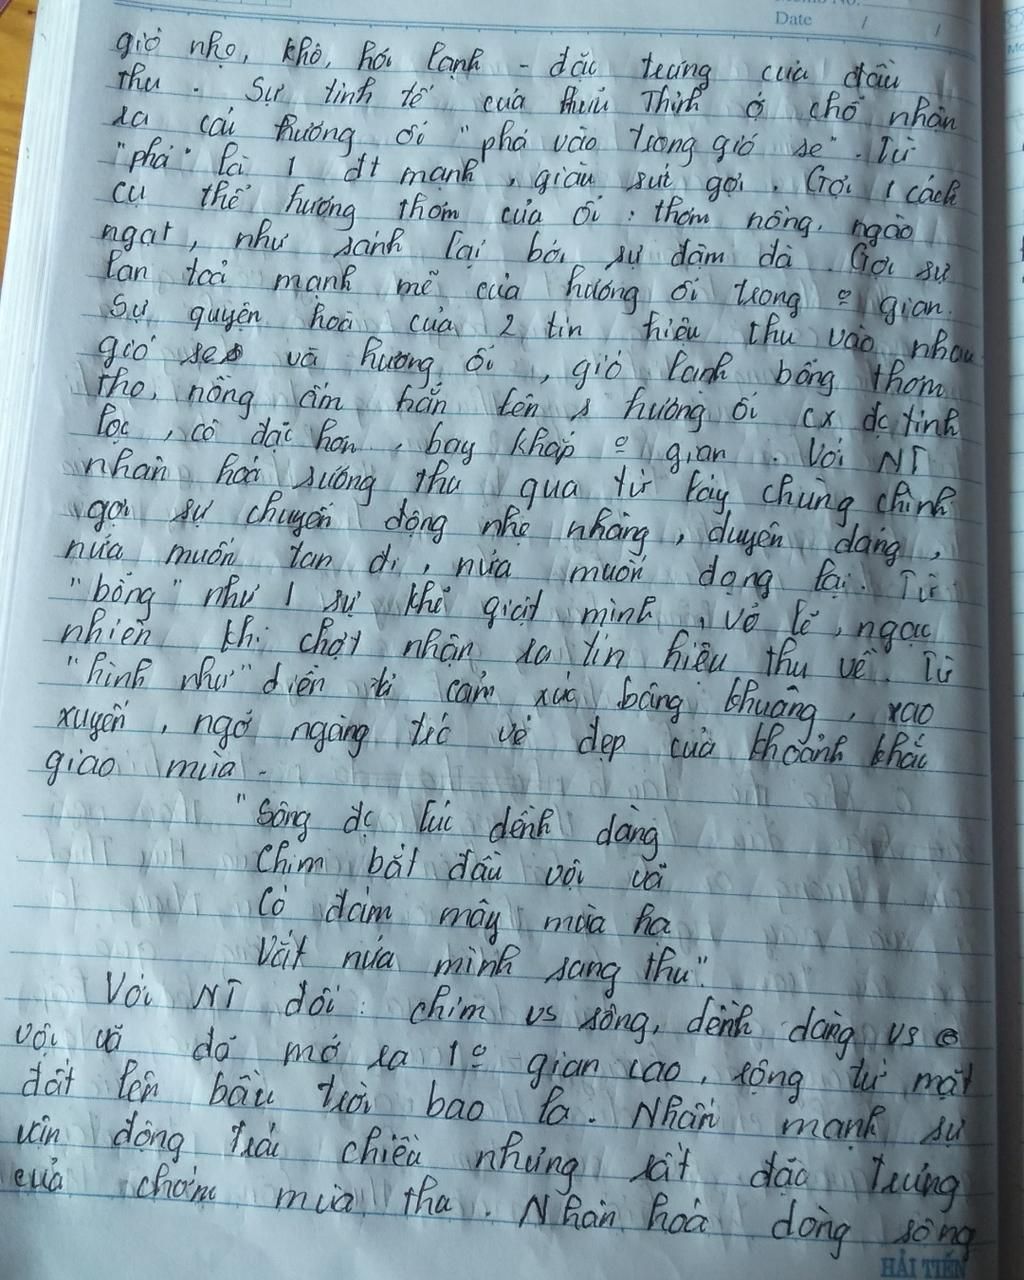 Memo No.
Date / /
gió nhẹ, khô, hơi lạnh - đặc trưng của đầu
thu. Sự tinh tế của Hữu Thỉnh ở chỗ nhận
ra cái hương ổi "phả vào trong gió se". Từ
"phả" là 1 đt mạnh, giàu sức gợi. Gợi 1 cách
cụ thể hương thơm của ổi: thơm nồng, ngào
ngạt, như sánh lại bởi sự đậm đà. Gợi sự
lan toả mạnh mẽ của hương ổi trong o gian.
Sự quyện hoà của 2 tín hiệu thu vào nhau
gió se và hương ổi, gió lạnh bỗng thơm
tho, nồng ấm hẳn lên, hương ổi cx đc tinh
lọc, cô đặc hơn, bay khắp o gian. Với NT
nhân hoá sương thu qua từ láy chùng chình
gợi sự chuyển động nhẹ nhàng, duyên dáng,
nửa muốn tan đi, nửa muốn đọng lại. Từ
"bỗng" như 1 sự khẽ giật mình, vỡ lẽ, ngạc
nhiên khi chợt nhận ra tín hiệu thu về. Từ
"hình như" diễn tả cảm xúc bâng khuâng, xao
xuyến, ngỡ ngàng trc vẻ đẹp của khoảnh khắc
giao mùa.
"Sông đc lúc dềnh dàng
Chim bắt đầu vội vã
Có đám mây mùa hạ
Vắt nửa mình sang thu"
Với NT đối: chim vs sông, dềnh dàng vs
vội vã đã mở ra 1 o gian cao, rộng từ mặt
đất lên bầu trời bao la. Nhấn mạnh sự
vận động trái chiều nhưng rất đặc trưng
của chớm mùa thu. Nhân hoá dòng sông
HẢI TIẾN